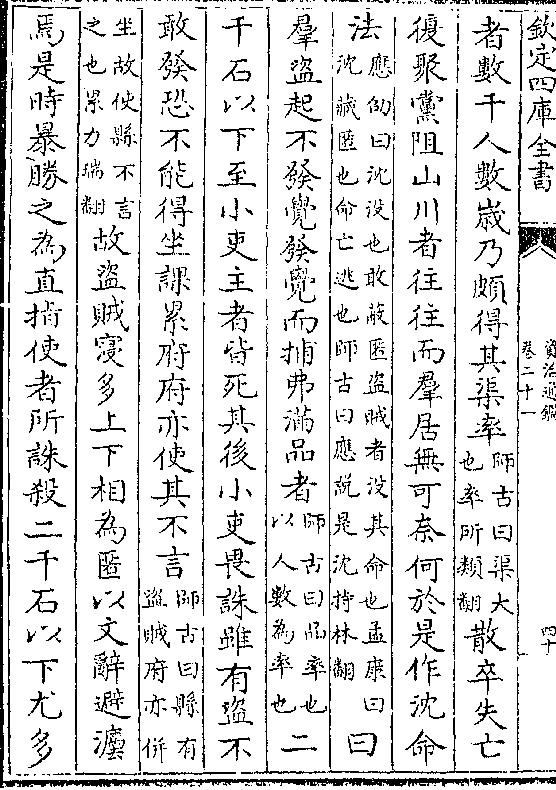 欽定四庫全書
資治通鑑
卷二十一
四十
者數千人數歲乃頗得其渠率師古曰渠大也率所類翻散卒失亡
復聚黨阻山川者往往而羣居無可奈何於是作沈命
法應劭曰沈没也敢蔽匿盜賊者没其命也孟康曰沈藏匿也命亡逃也師古曰應説是沈持林翻曰
羣盜起不發覺發覺而捕弗滿品者師古曰品率也以人數為率也二
千石以下至小吏主者皆死其後小吏畏誅雖有盜不
敢發恐不能得坐課累府府亦使其不言師古曰縣有盜賊府亦併
坐故使縣不言之也累力瑞翻故盜賊寖多上下相為匿以文辭避灋
焉是時暴勝之為直指使者所誅殺二千石以下尤多